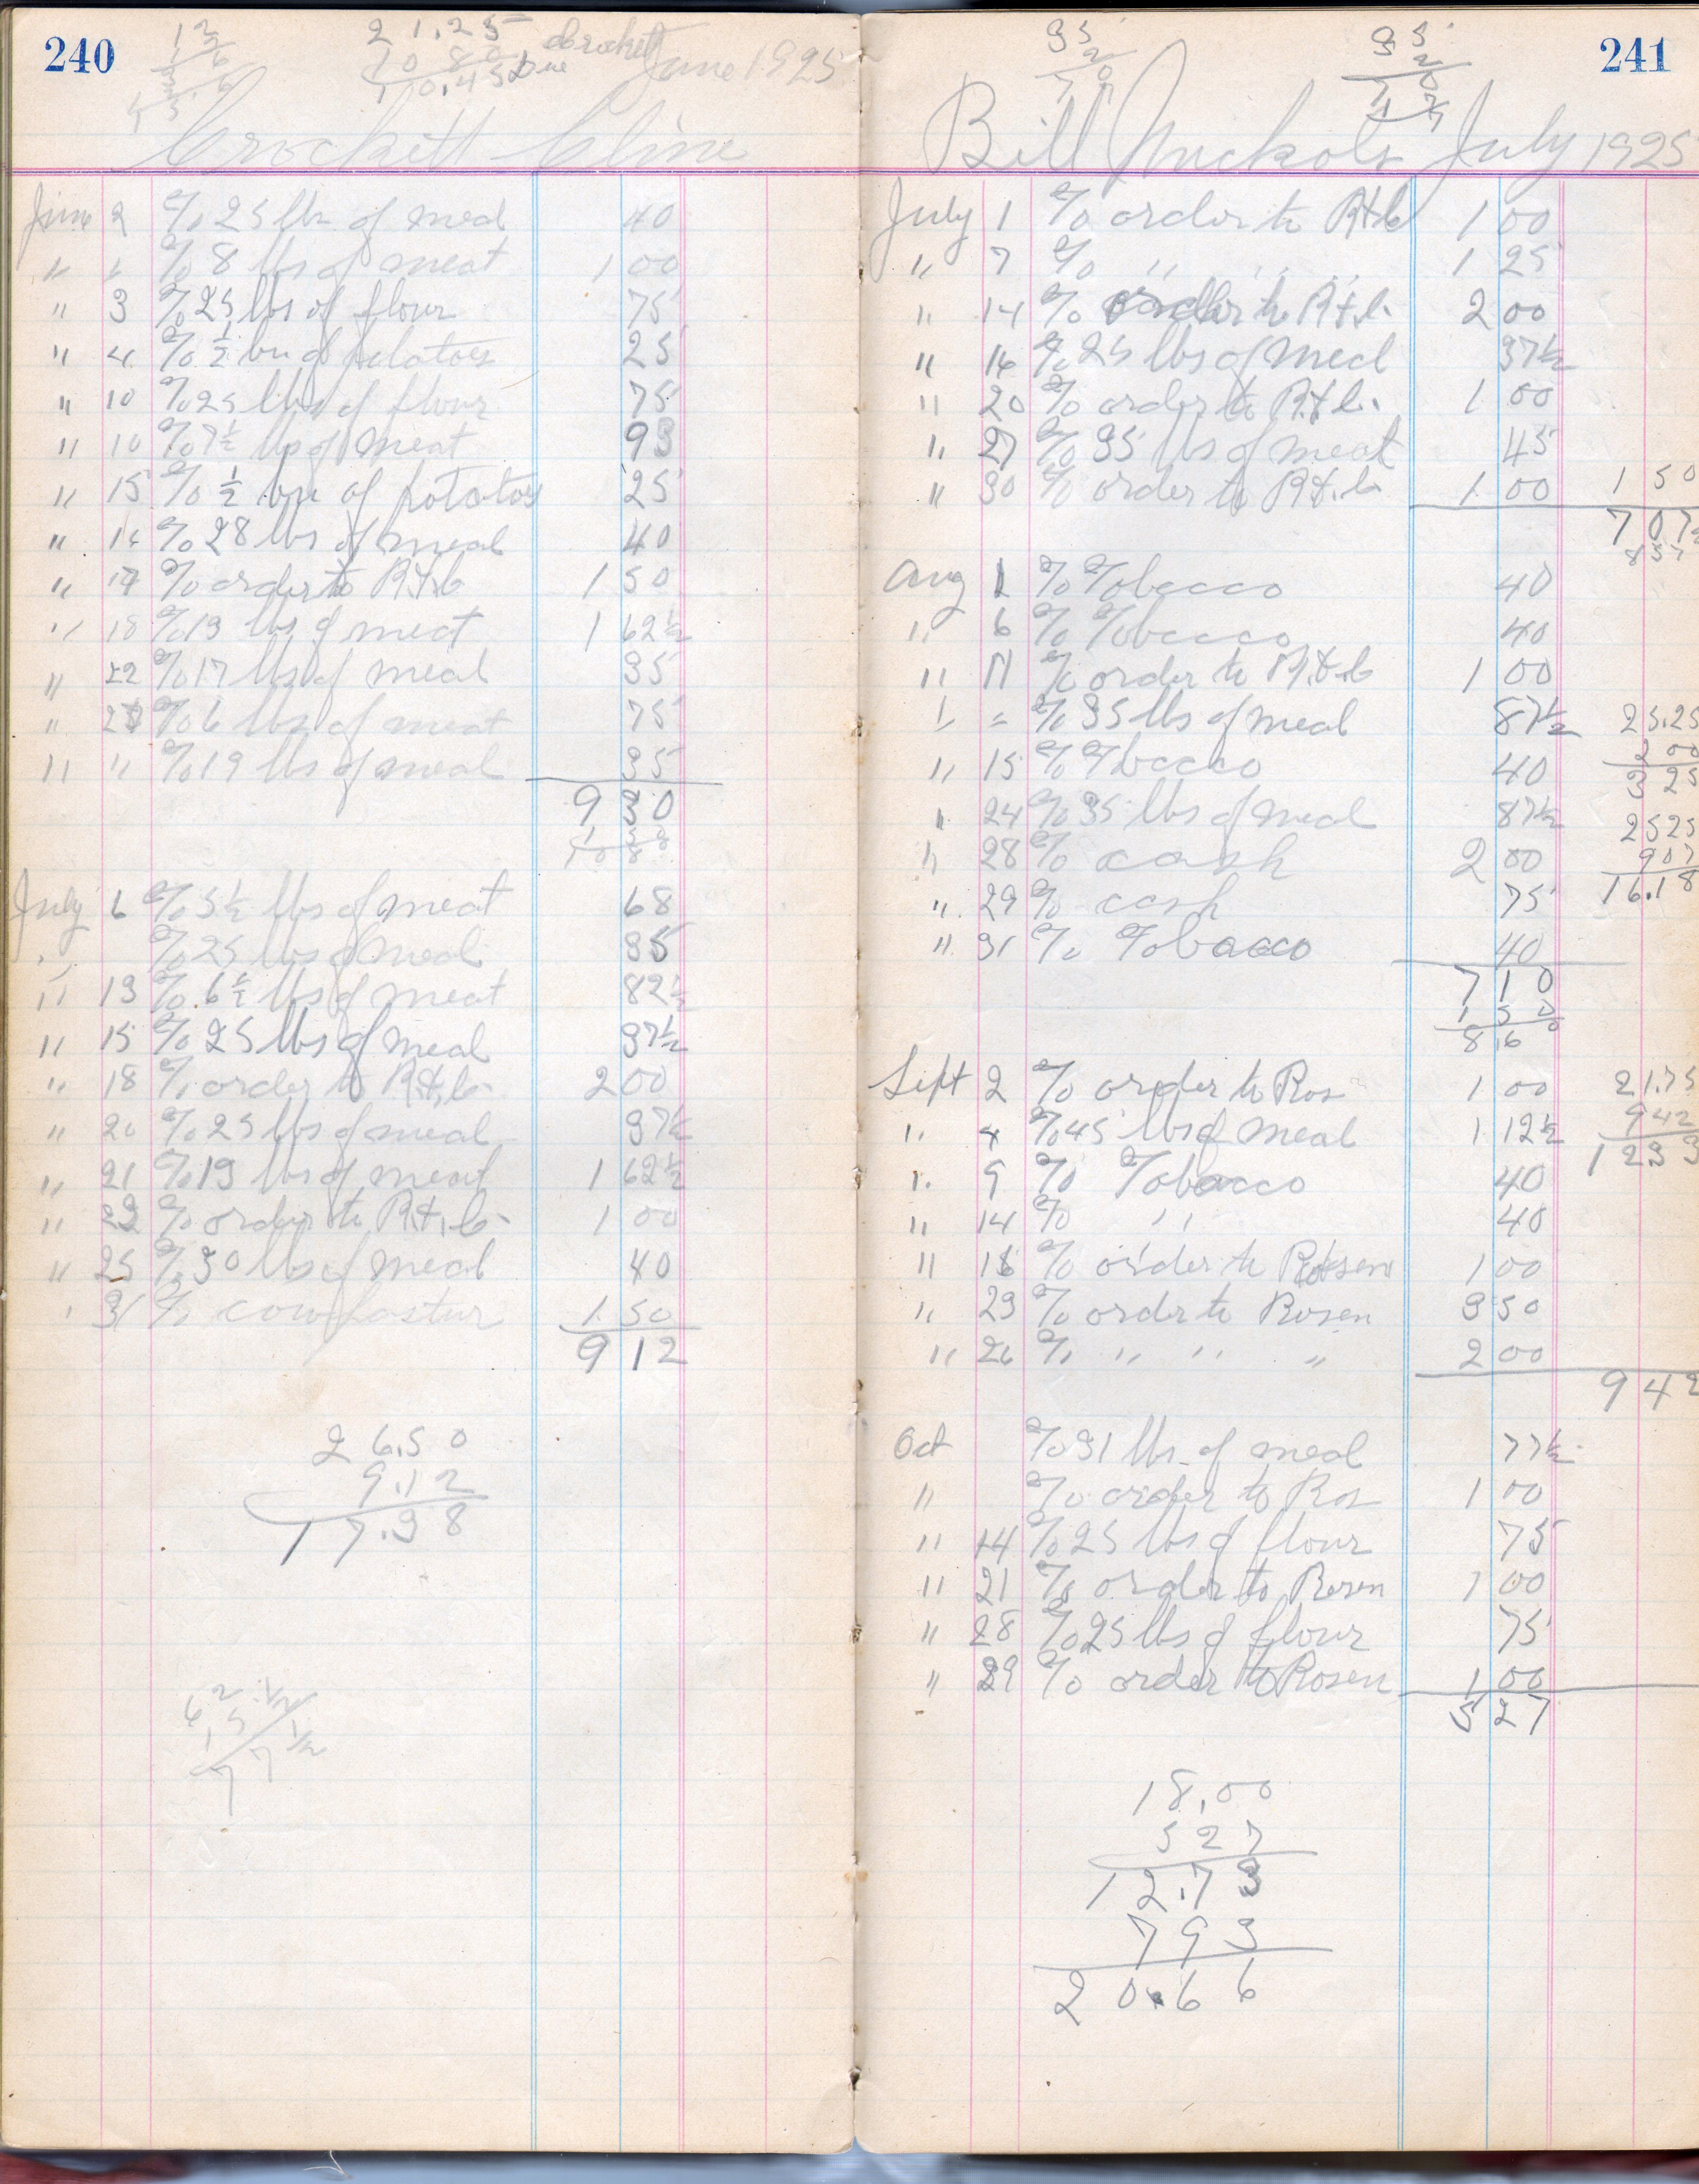 240
21.25
10 80
10.45 Due
Crockett
June 1925
Crockett Cline
June 2 % 25 lbs of meal 40
" " % 8 lbs of meat 1 00
" 3 % 25 lbs of flour 75
" 4 % ½ bu of potatoes 25
" 10 % 25 lbs of flour 75
" 10 % 7½ lbs of meat 93
" 15 % ½ bu of potatoes 25
" 16 % 28 lbs of meal 40
" 17 % order to R.+.C 1 50
" 18 % 13 lbs of meat 1 62½
" 22 % 17 lbs of meal 35
" % 6 lbs of meat 75
" " % 19 lbs of meal 35
9 30
July 6 % 5½ lbs of meat 68
" % 25 lbs of meal 35
" 13 % 6½ lbs of meat 82½
" 15 % 25 lbs of meal 37½
" 18 % order to R.+.C. 2 00
" 20 % 25 lbs of meal 37½
" 21 % 13 lbs of meat 1 62½
" 22 % order to R.+.C. 1 00
" 25 % 30 lbs of meal 40
" 31 % cow pastur 1 50
9 12
26.50
9.12
17.38
62 ½
15
77 ½
241
35
20
35
20
Bill Nickols July 1925
July 1 % order to R+C 1 00
" 7 % " " " 1 25
" 14 % order to R.+.C. 2 00
" 16 % 25 lbs of meal 37½
" 20 % order to R.+.C. 1 00
" 27 % 35 lbs of meat 45
" 30 % order to R.+.C 1 00
1 50
7 07½
857
Aug 1 % Tobacco 40
" 6 % Tobacco 40
" 11 % order to R.+.C 1 00
" = % 35 lbs of meal 87½
25.25
2 00
3 25
" 15 % Tobacco 40
" 24 % 35 lbs of meal 87½
" 28 % cash 2 00
2525
907
16.18
" 29 % cash 75
" 31 % Tobacco 40
7 10
1 50
8 60
Sept 2 % order to Ros 1 00
" 4 % 45 lbs of meal 1 12½
21.75
942
1233
" 9 % Tobacco 40
" 14 % " 40
" 18 % order to Rosen 1 00
" 23 % order to Rosen 3 50
" 26 % " " " 2 00
9 42
Oct % 31 lbs of meal 77½
" % order to Ros 1 00
" 14 % 25 lbs of flour 75
" 21 % order to Rosen 1 00
" 28 % 25 lbs of flour 75
" 29 % order to Rosen 1 00
5 27
18.00
5 27
12.73
7 93
20.66